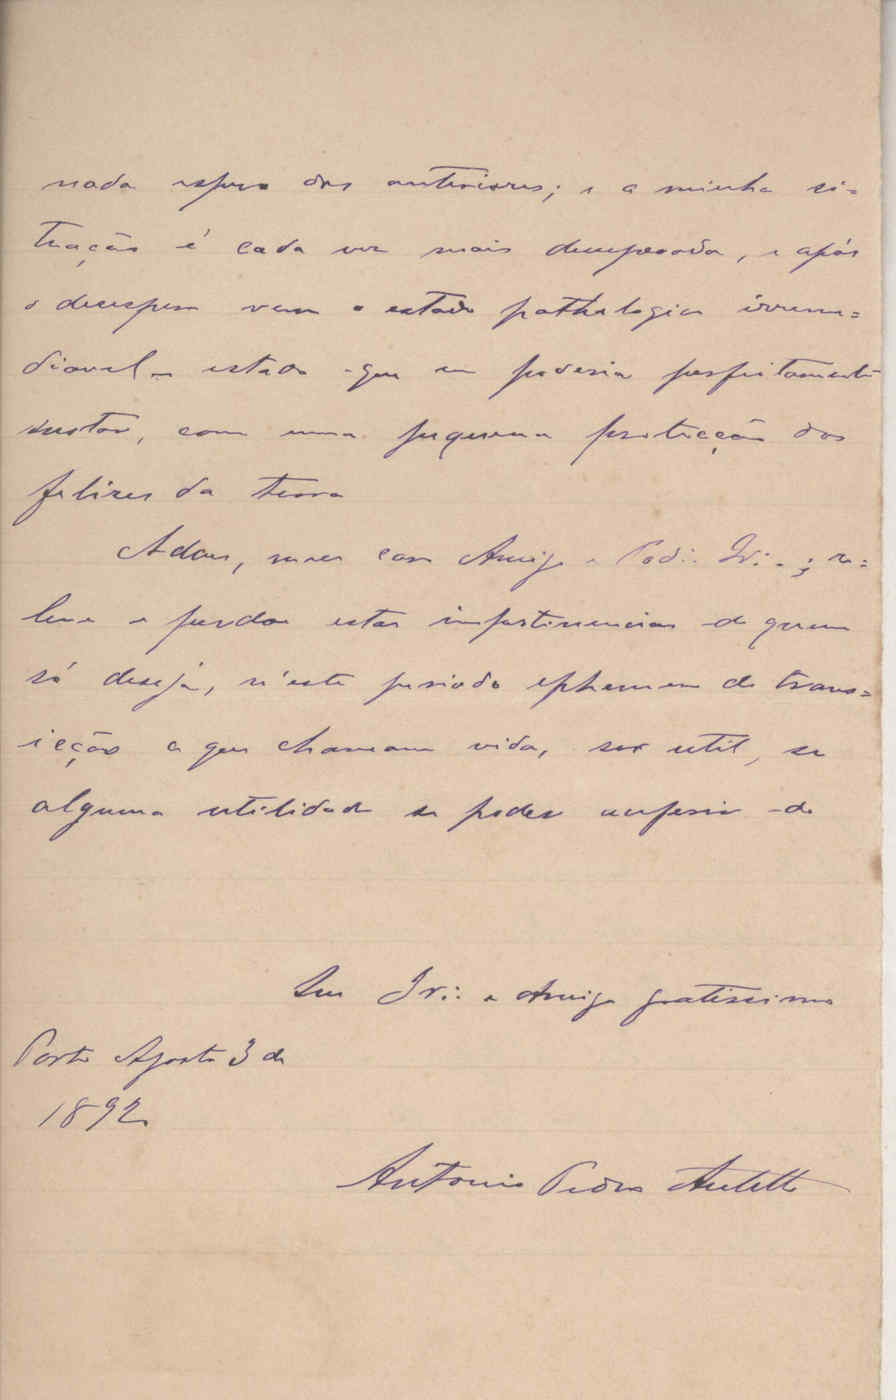 nada espero dos anteriores; e a minha si=
tuação é cada vez mais desesperada, e após
o desespero vem o estado pathologico irreme=
diavel – estado que eu poderia perfeitamente
sustar, com uma pequena protecção dos
felizes da terra
Adeus, meu caro Amigo e Pod∴ Ir∴; re=
leve e perdoe estas impertinencias de quem
só deseja, n'este periodo ephemero de trans=
icção a que chamam vida, ser util, se
alguma utilidade se poder auferir do
Seu Ir∴ e Amigo gratissimo
Porto Agosto 3 de
1892
Antonio Pedro